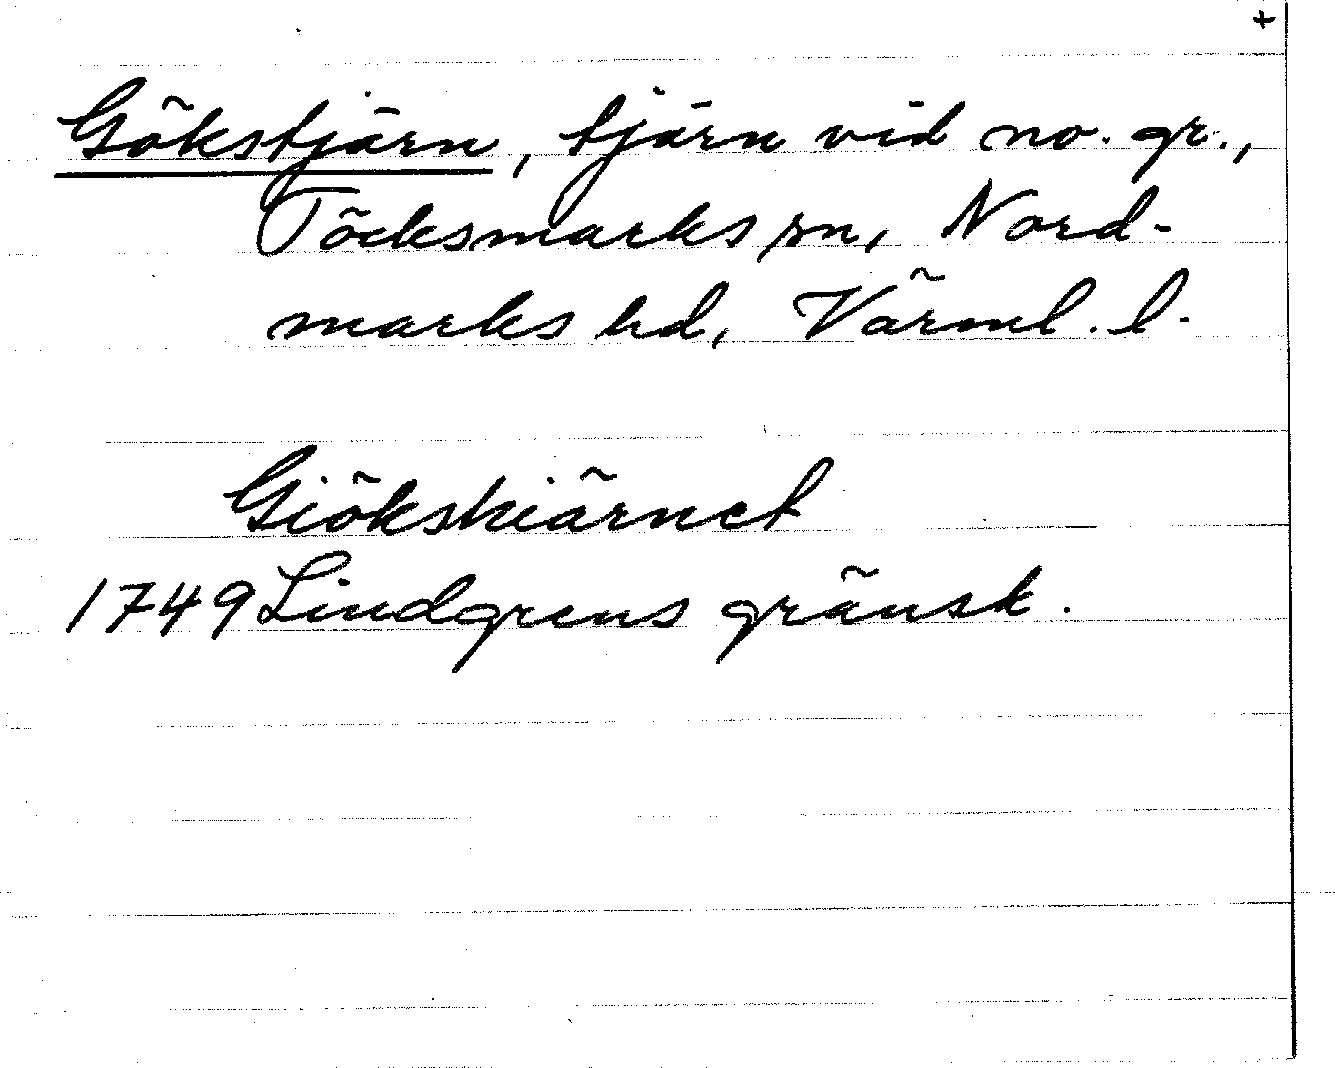 +
Gökstjärn, tjärn vid no. gr.,
Töcksmarks sn, Nord-
marks hd, Värml. l.
Giökskiärnet
1749 Lindgrens gränsk.